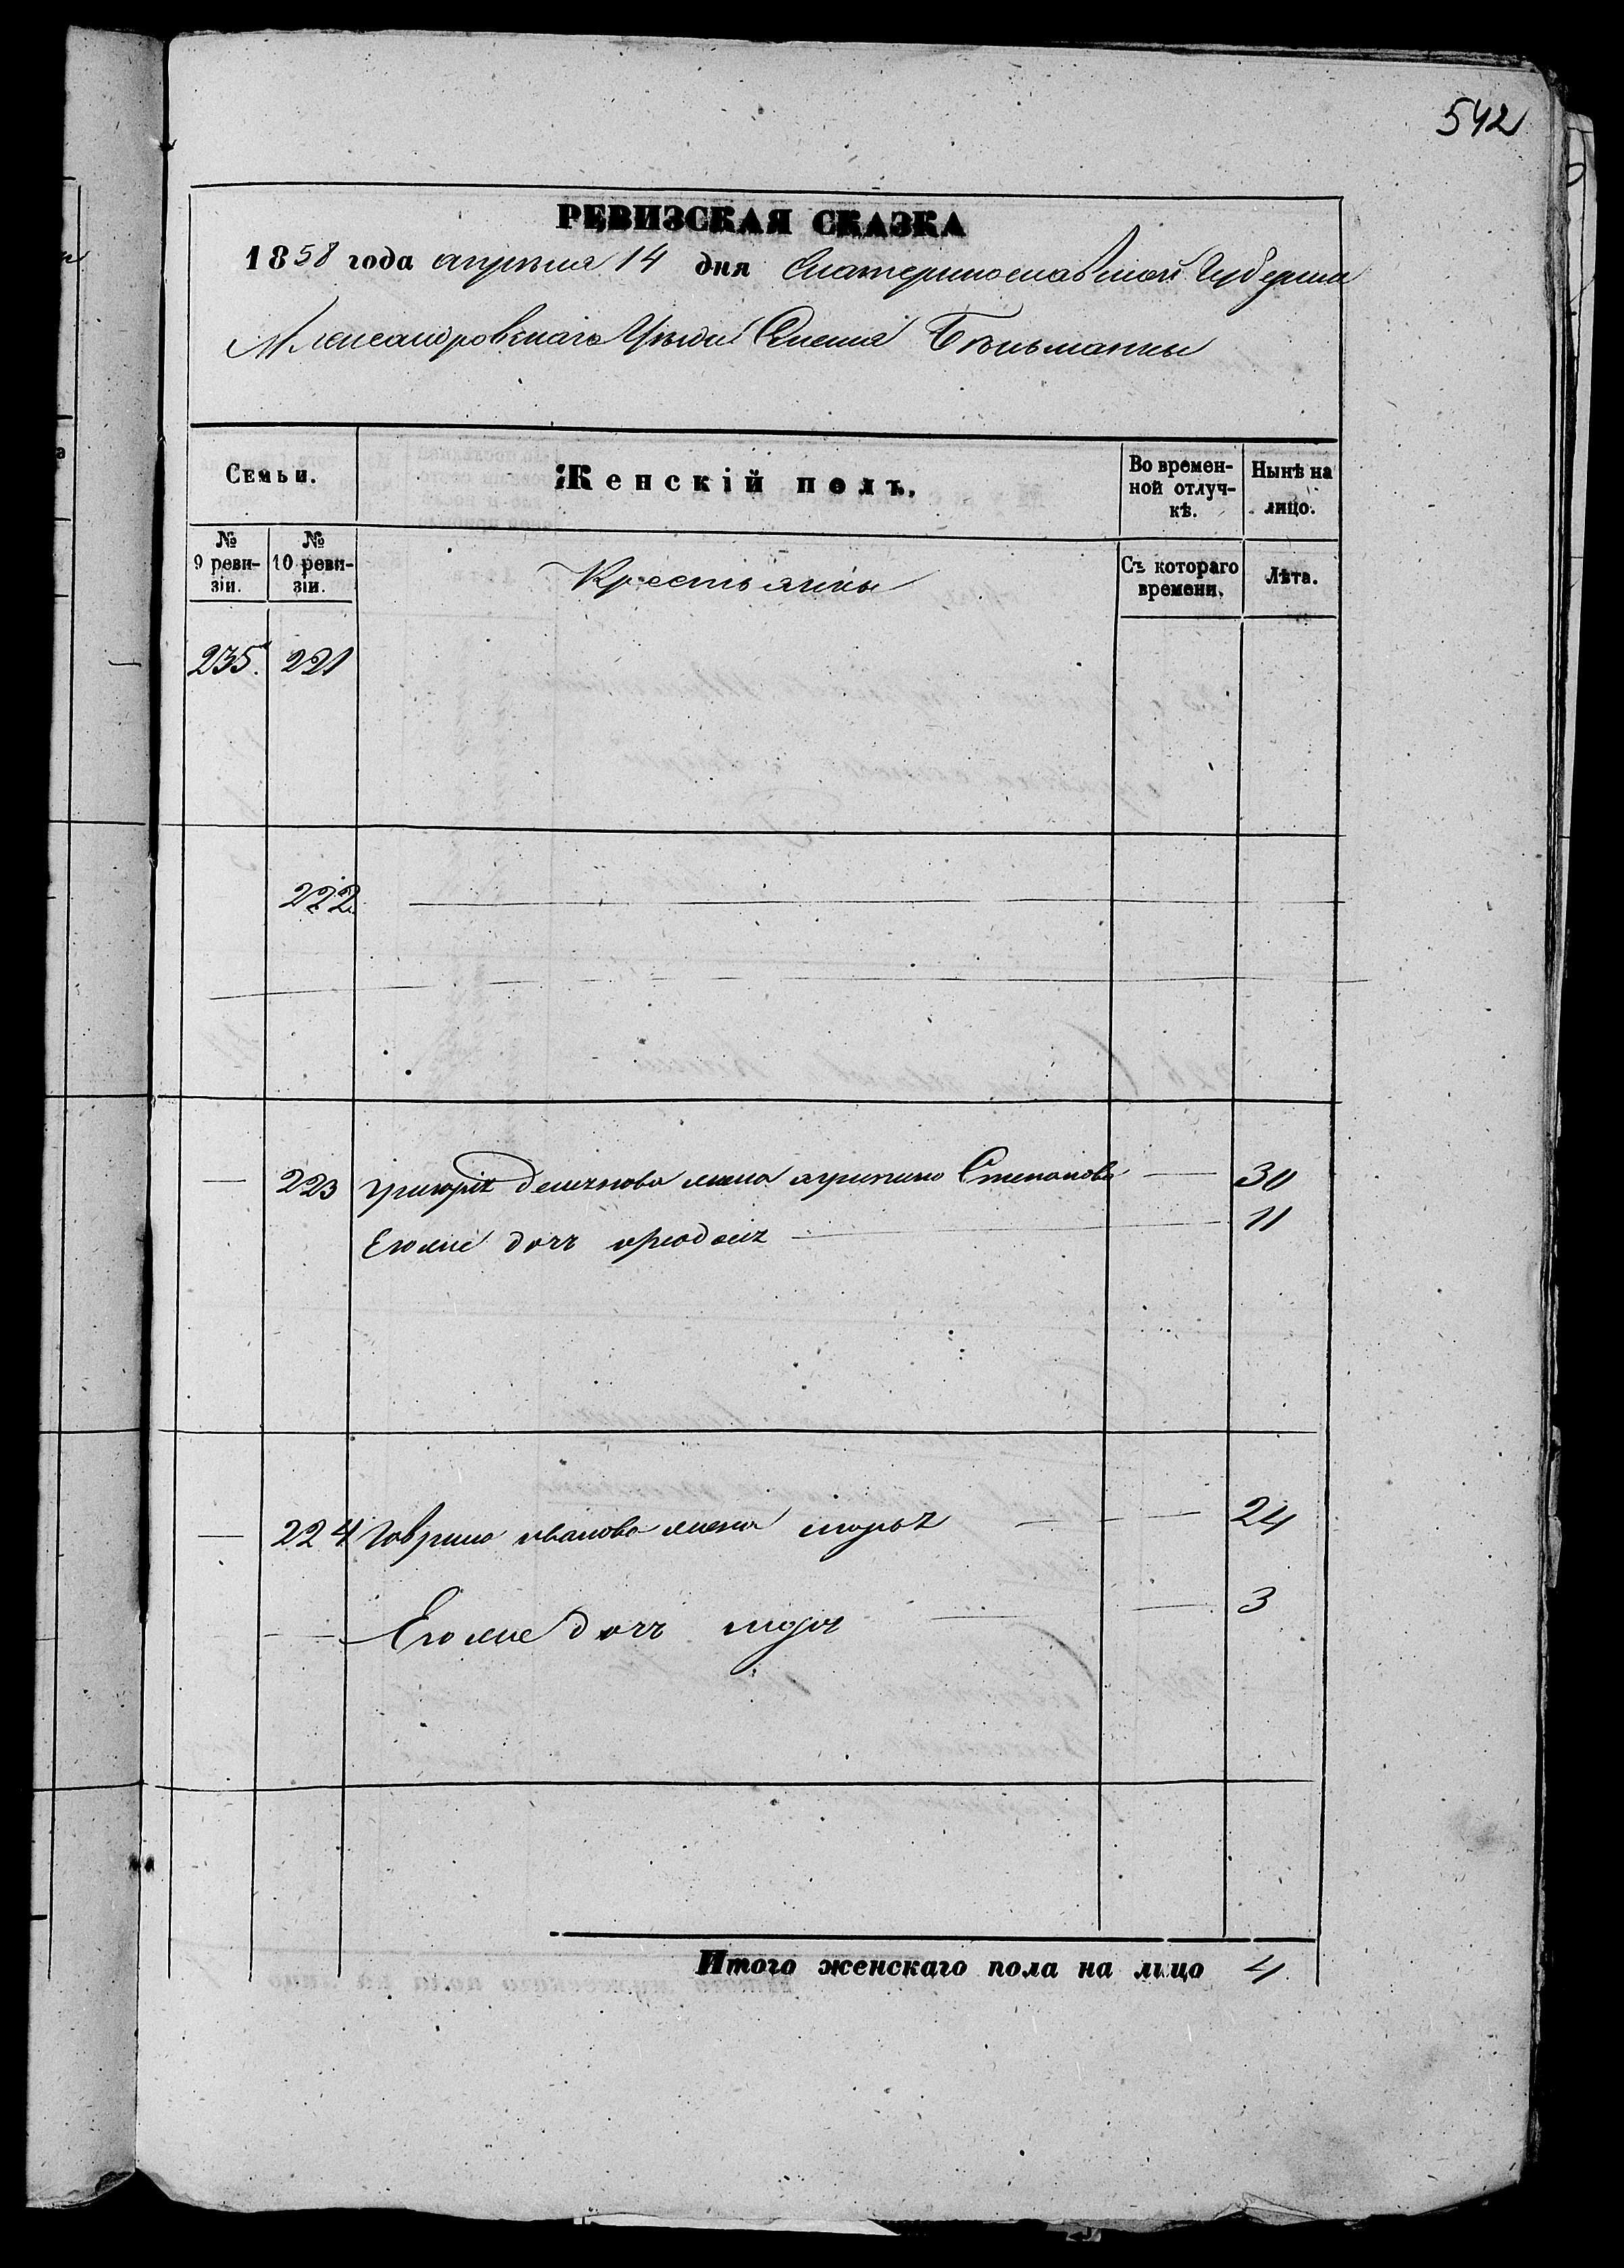 542
РЕВИЗСКАЯ СКАЗКА
1858 года апреля 14 дня Екатеринославской Губернии
Александровскаго Уѣзда Селения Бѣльманки
Семьи.
Женскій полъ.
Во времен-
ной отлуч-
кѣ.
Нынѣ на
лицо.
№
9 реви-
зіи.
№
10 реви-
зіи.
Крестьянины
Съ котораго
времени.
Лѣта.
235. 221
222
223 григория жена агрипина Степанова 30
Егоже дочь 11
224 Гаврила иванова жена марья 24
Егоже дочь 3
Итого женскаго пола на лицо 4.